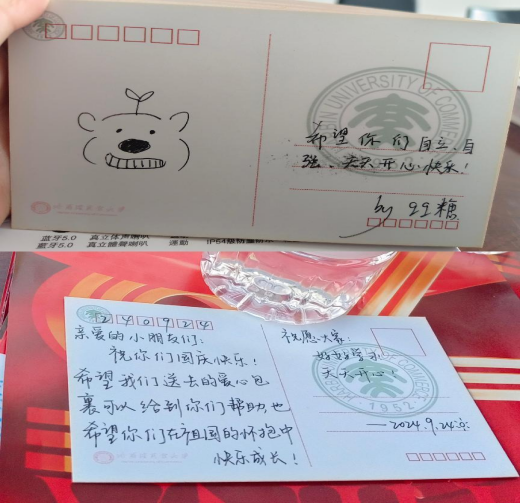 UNIVERSITY OF COMME
希望你们自立、自
强 天天开心快乐!
by QQ糖
蓝牙5.0 真立体声喇叭
藍牙5.0 真立體聲喇叭 運動
240924
亲爱的小朋友们:
祝你们国庆快乐!
希望我们送去的爱心包
裹可以给到你们帮助也
希望你们在祖国的怀抱中
快乐成长!
祝愿大家:
好好学习
天天开心!
1952
—2024.9.24